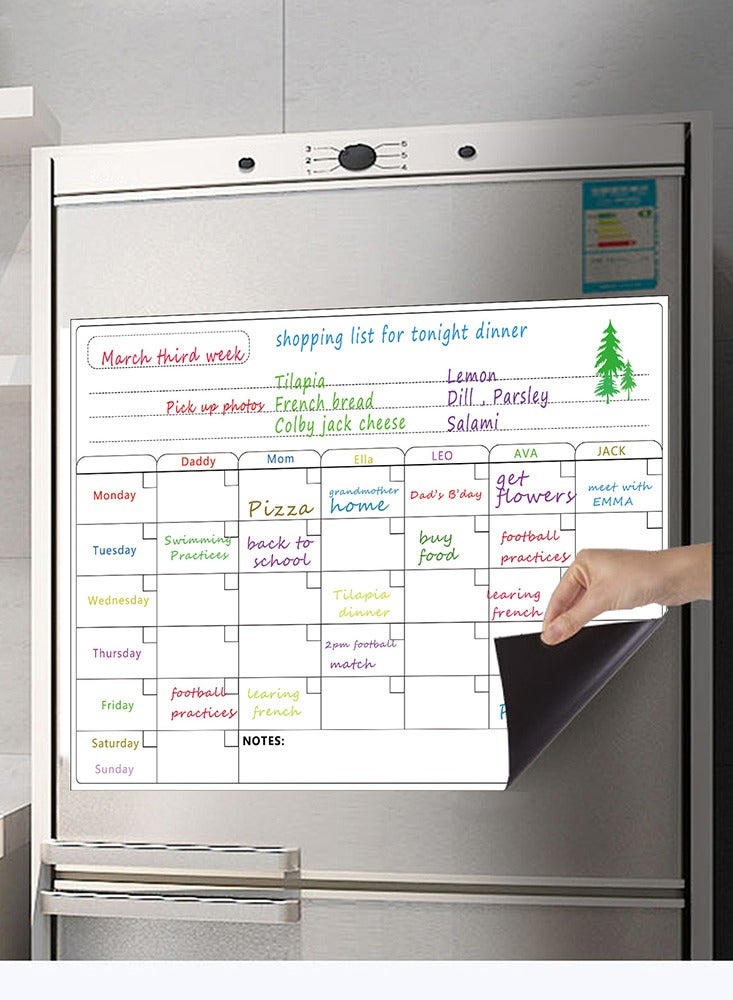 3 6
2 5
1 4
March third week
shopping list for tonight dinner
Tilapia Lemon
Pick up photos French bread Dill , Parsley
Colby jack cheese Salami
Daddy Mom Ella LEO AVA JACK
Monday Pizza grandmother home Dad's B'day get flowers meet with EMMA
Tuesday Swimming Practices back to school buy food football practices
Wednesday Tilapia dinner learing french
Thursday 2pm football match
Friday football practices learing french
Saturday NOTES:
Sunday